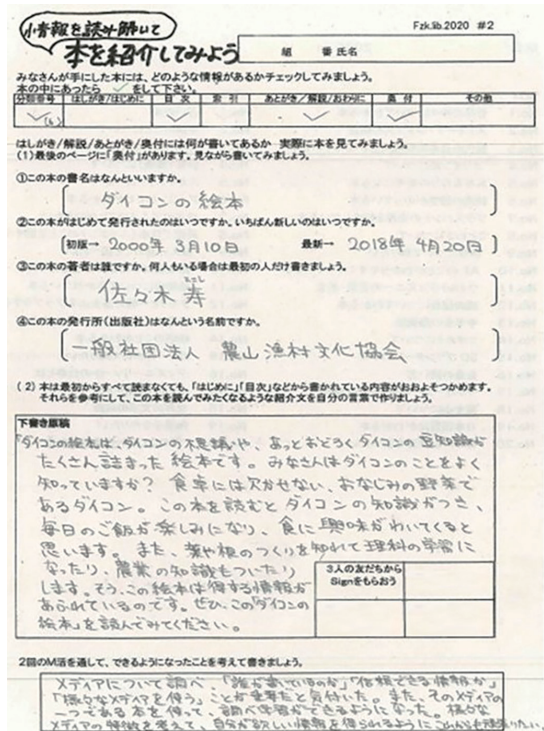 小情報を読み解いて
本を紹介してみよう
Fzk.lib.2020 #2
組 番 氏名
みなさんが手にした本には、どのような情報があるかチェックしてみましょう。
本の中にあったら ✓ をして下さい。
分類番号 はしがき/はじめに 目次 索引 あとがき/解説/おわりに 奥付 その他
はしがき/解説/あとがき/奥付には何が書いてあるか 実際に本を見てみましょう。
(1)最後のページに「奥付」があります。見ながら書いてみましょう。
①この本の書名はなんといいますか。
ダイコンの絵本
②この本がはじめて発行されたのはいつですか。いちばん新しいのはいつですか。
初版→ 2000年 3月10日 最新→ 2018年 4月20日
③この本の著者は誰ですか。何人もいる場合は最初の人だけ書きましょう。
佐々木 寿
④この本の発行所(出版社)はなんという名前ですか。
一般社団法人 農山漁村文化協会
(2)本は最初からすべて読まなくても、「はじめに」「目次」などから書かれている内容がおおよそつかめます。
それらを参考にして、この本を読んでみたくなるような紹介文を自分の言葉で作りましょう。
下書き原稿
「ダイコンの絵本は、ダイコンの不思議や、あっとおどろくダイコンの豆知識が
たくさん詰まった絵本です。みなさんはダイコンのことをよく
知っていますか? 食卓には欠かせない、おなじみの野菜で
あるダイコン。この本を読むとダイコンの知識がつき、
毎日のご飯が楽しみになり、食に興味がわいてくると
思います。また、葉や根のつくりを知れて理科の学習に
なったり、農業の知識もついたり
します。そう、この絵本は得する情報が
あふれているのです。ぜひ、この「ダイコンの
絵本」を読んでみてください。
3人の友だちから
Signをもらおう
2回のM活を通して、できるようになったことを考えて書きましょう。
メディアについて調べ、「誰が書いているのか」「信頼できる情報か」
「様々なメディアを使う」ことが重要だと気付いた。また、そのメディアの
一つである本を使って、調べ学習ができるようになった。様々な
メディアの特徴を考えて、自分が欲しい情報を得られるようにこれからも頑張りたい。